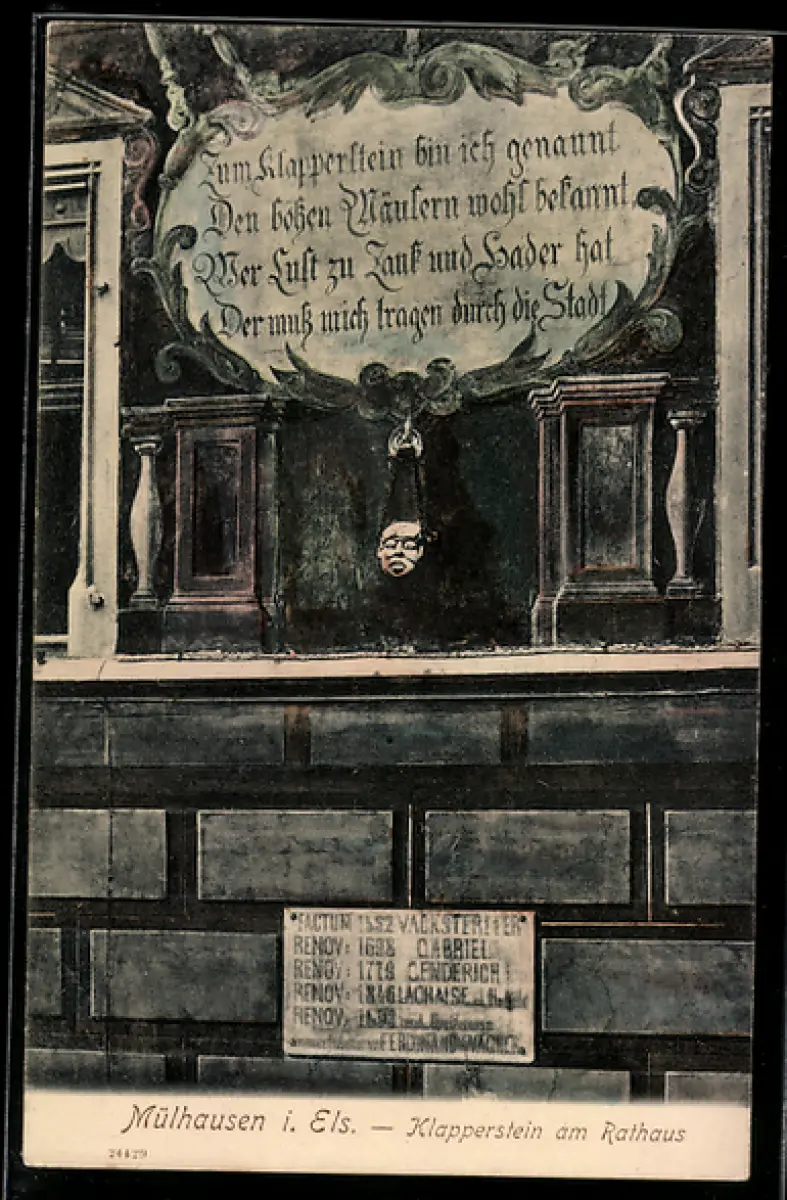 Zum Klapperstein bin ich genannt
Den bößen Mäulern wohl bekannt
Wer Lust zu Zank und Hader hat
Der muß mich tragen durch die Stadt
FACTUM
RENOV: 1698 GABRIEL
RENOV: 1719 C.ENDERICH
RENOV: LACHAISE
RENOV:
FERDINAND WAGNER
Mülhausen i. Els. — Klapperstein am Rathaus
24429